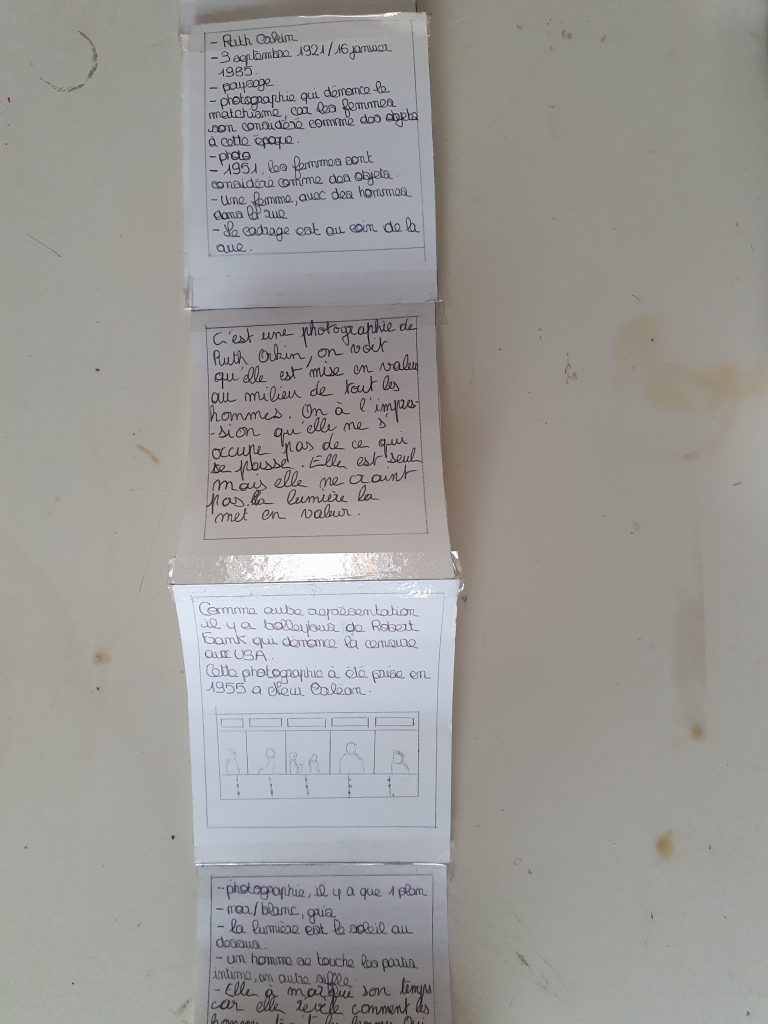 - Ruth Orkin
- 3 septembre 1921/16 janvier
1985.
- paysage
- photographie qui dénonce le
matchisme, car les femmes
son considéré comme des objets
à cette époque.
- photo
- 1951, les femmes sont
considéré comme des objets.
- une femme, avec des hommes
dans la rue
- Le cadrage est au coin de la
rue.
C'est une photographie de
Ruth Orkin, on voit
qu'elle est mise en valeur
au milieu de tout les
hommes. On à l'impres-
-sion qu'elle ne s'
occupe pas de ce qui
se passe. Elle est seul
mais elle ne craint
pas. La lumière la
met en valeur.
Comme autre représentation
il y a de Robert
qui dénonce la censure
aux USA.
Cette photographie à été prise en
1955 a
- photographie, il y a que 1 plan
- noir/blanc, gris
- la lumière est le soleil au
dessus.
- un homme se touche les partis
intime, un autre siffle.
- Elle à marqué son temps
car elle révèle comment les